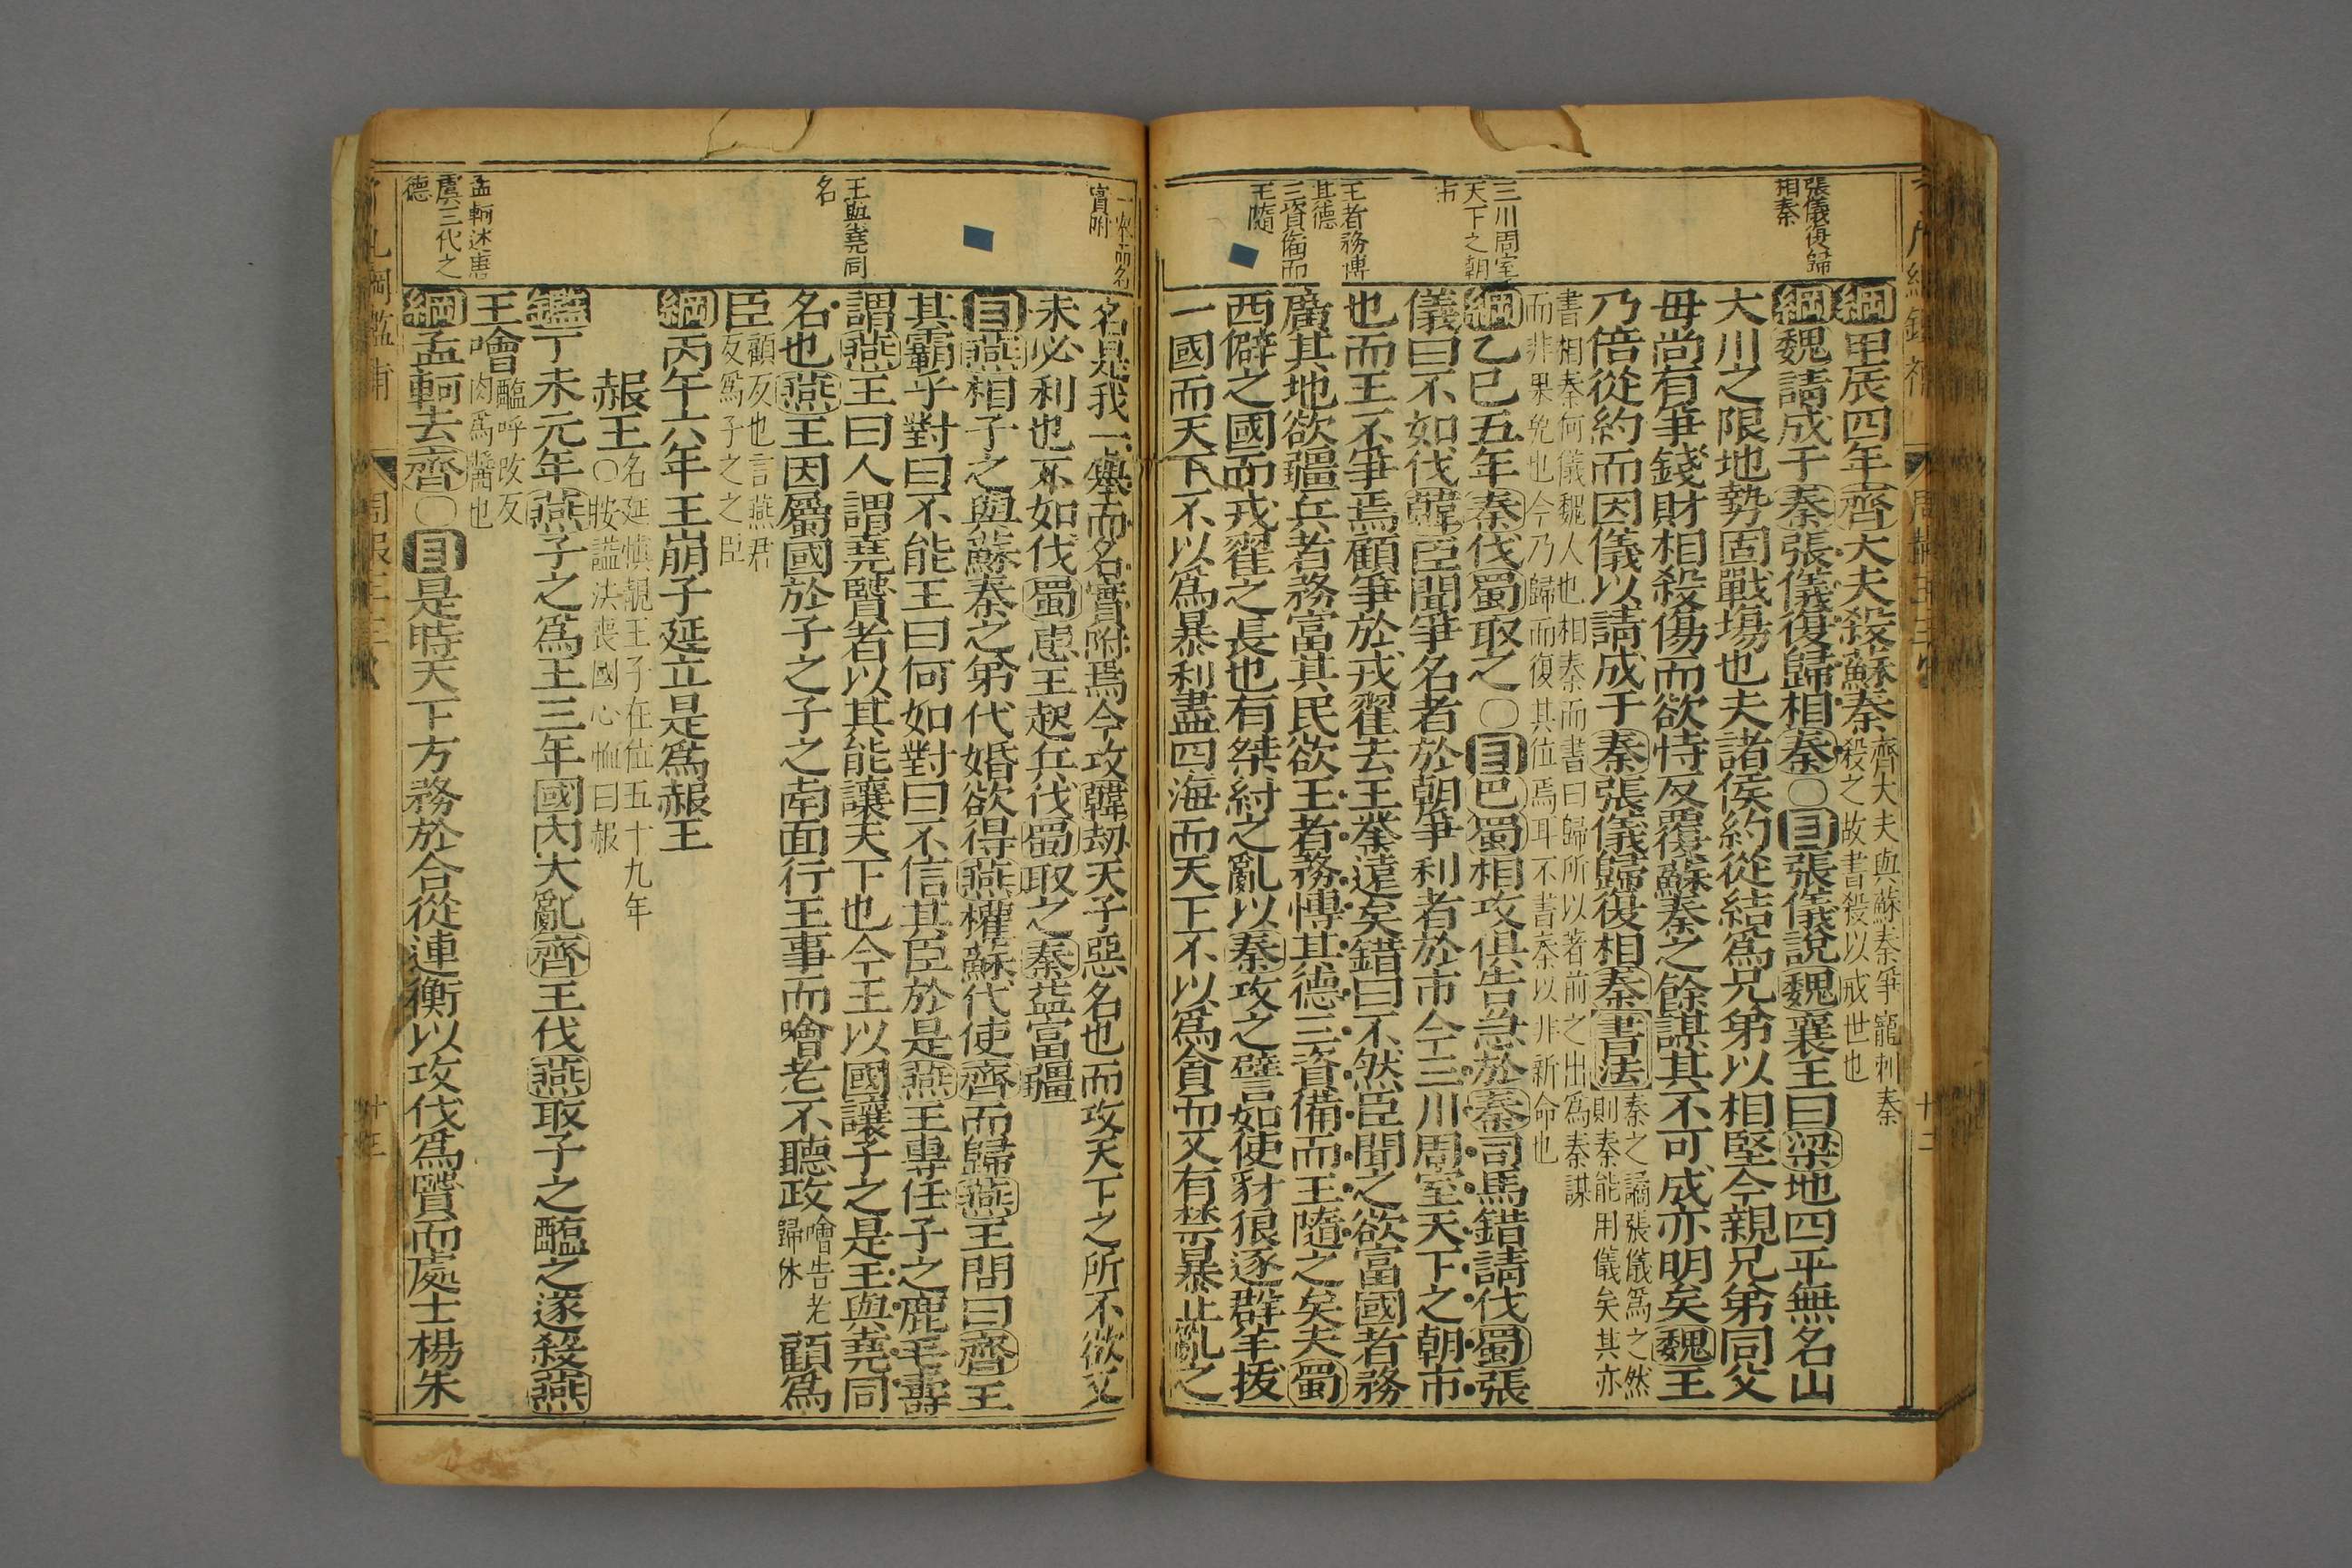 張儀復歸
相秦
三川周室
天下之朝
市
王者務博
其德
三資備而
王隨
綱甲辰四年齊大夫殺蘇秦齊大夫與蘇秦爭寵刺秦
殺之故書殺以戒世也
綱魏請成于秦張儀復歸相秦○目張儀說魏襄王曰梁地四平無名山
大川之限地勢固戰場也夫諸侯約從結為兄弟以相堅今親兄弟同父
毋尚有爭錢財相殺傷而欲恃反覆蘇秦之餘謀其不可成亦明矣魏王
乃倍從約而因儀以請成于秦張儀歸復相秦書法秦之譎張儀為之然
則秦能用儀矣其亦
書相秦何儀魏人也相秦而書曰歸所以著前之出為秦謀
而非果免也今乃歸而復其位焉耳不書秦以非新命也
綱乙巳五年秦伐蜀取之○目巴蜀相攻俱告急於秦司馬錯請伐蜀張
儀曰不如伐韓臣聞爭名者於朝爭利者於市今三川周室天下之朝市
也而王不爭焉顧爭於戎翟去王業遠矣錯曰不然臣聞之欲富國者務
廣其地欲疆兵者務富其民欲王者務博其德三資備而王隨之矣夫蜀
西僻之國而戎翟之長也有桀紂之亂以秦攻之譬如使豺狼逐群羊拔
一國而天下不以為暴利盡四海而天下不以為貪而又有禁暴止亂之
一舉而名
實附
王與堯同
名
孟軻述唐
虞三代之
德
名是我一舉而名實附焉今攻韓劫天子惡名也而攻天下之所不欲又
未必利也不如伐蜀惠王起兵伐蜀取之秦益富疆
目燕相子之與蘇秦之弟代婚欲得燕權蘇代使齊而歸燕王問曰齊王
其霸乎對曰不能王曰何如對曰不信其臣於是燕王專任子之鹿毛壽
謂燕王曰人謂堯賢者以其能讓天下也今王以國讓子之是王與堯同
名也燕王因屬國於子之子之南面行王事而噲老不聽政噲告老
歸休顧為
臣顧反也言燕君
反為子之之臣
綱丙午六年王崩子延立是為赧王
赧王名延慎靚王子在位五十九年
○按謚法喪國心恤曰赧
鑑丁未元年燕子之為王三年國內大亂齊王伐燕取子之醢之遂殺燕
王噲醢呼改反
肉為醬也
綱孟軻去齊○目是時天下方務於合從連衡以攻伐為賢而處士楊朱